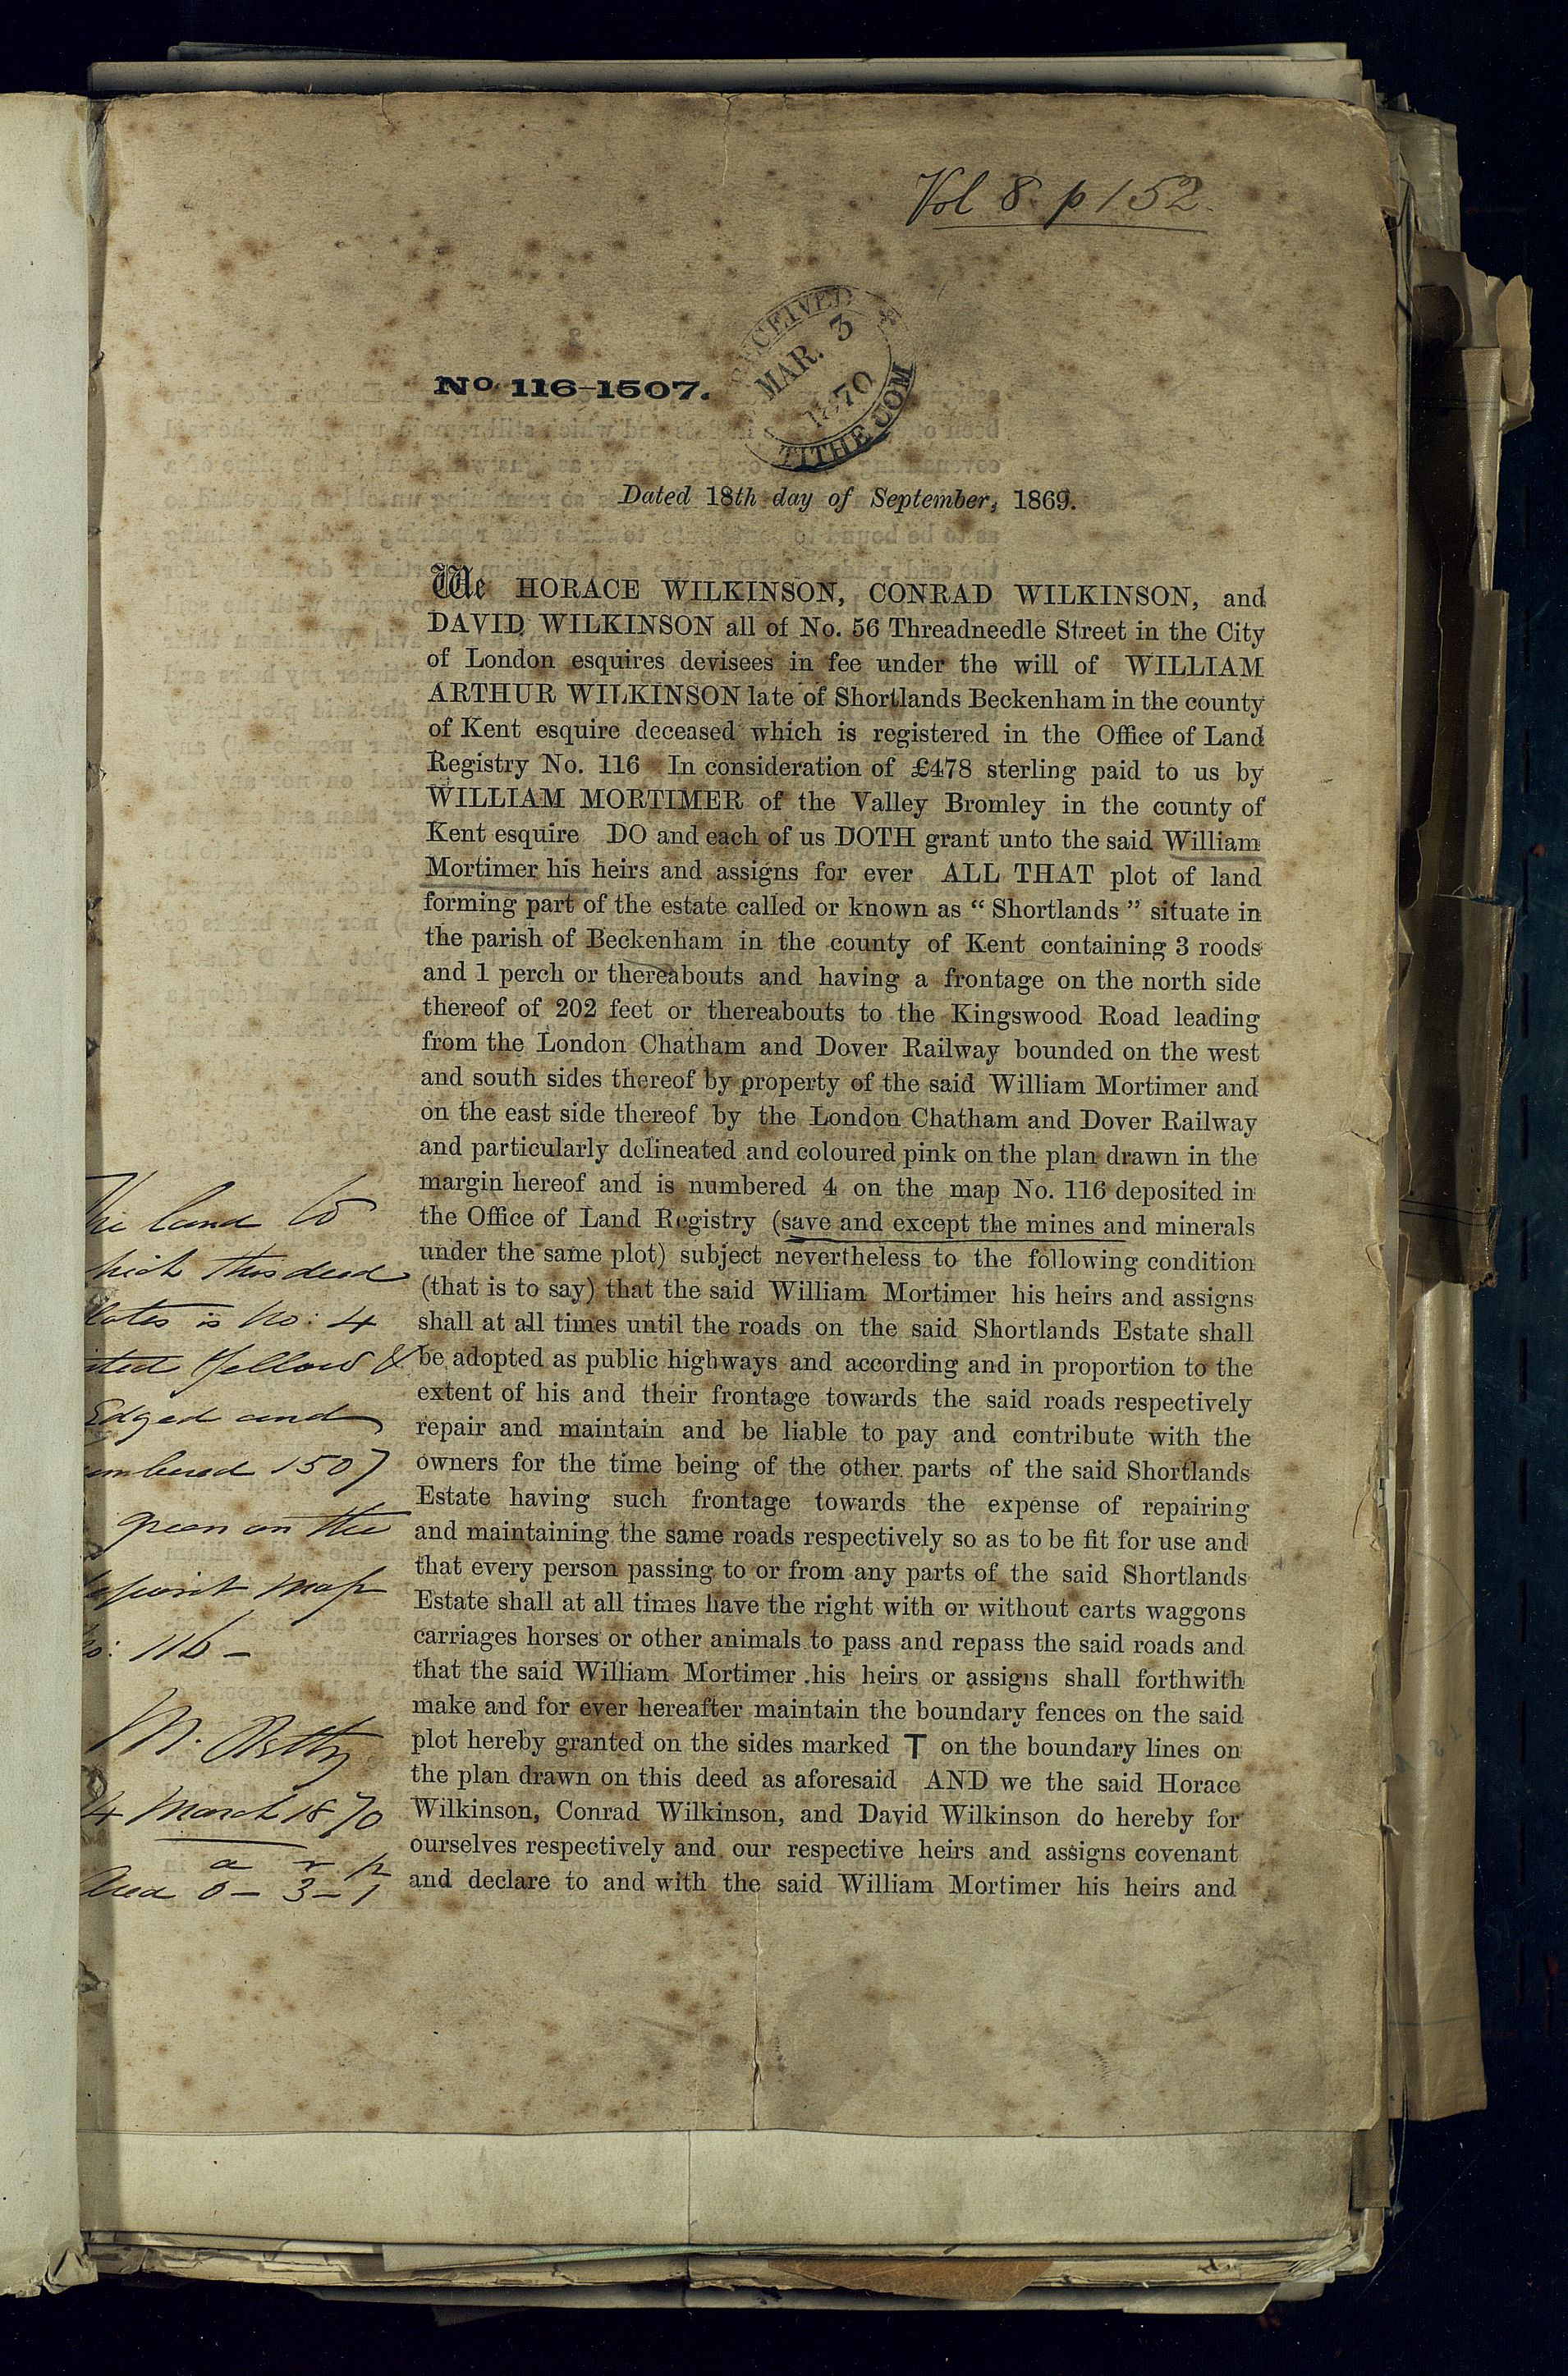 Vol 8. p 152.
RECEIVED
MAR. 3
1870
TITHE COM
No. 116-1507.
Dated 18th day of September, 1869.
We HORACE WILKINSON, CONRAD WILKINSON, and
DAVID WILKINSON all of No. 56 Threadneedle Street in the City
of London esquires devisees in fee under the will of WILLIAM
ARTHUR WILKINSON late of Shortlands Beckenham in the county
of Kent esquire deceased which is registered in the Office of Land
Registry No. 116 In consideration of £478 sterling paid to us by
WILLIAM MORTIMER of the Valley Bromley in the county of
Kent esquire DO and each of us DOTH grant unto the said William
Mortimer his heirs and assigns for ever ALL THAT plot of land
forming part of the estate called or known as “ Shortlands ” situate in
the parish of Beckenham in the county of Kent containing 3 roods
and 1 perch or thereabouts and having a frontage on the north side
thereof of 202 feet or thereabouts to the Kingswood Road leading
from the London Chatham and Dover Railway bounded on the west
and south sides thereof by property of the said William Mortimer and
on the east side thereof by the London Chatham and Dover Railway
and particularly delineated and coloured pink on the plan drawn in the
margin hereof and is numbered 4 on the map No. 116 deposited in
the Office of Land Registry (save and except the mines and minerals
under the same plot) subject nevertheless to the following condition
(that is to say) that the said William Mortimer his heirs and assigns
shall at all times until the roads on the said Shortlands Estate shall
be adopted as public highways and according and in proportion to the
extent of his and their frontage towards the said roads respectively
repair and maintain and be liable to pay and contribute with the
owners for the time being of the other parts of the said Shortlands
Estate having such frontage towards the expense of repairing
and maintaining the same roads respectively so as to be fit for use and
that every person passing to or from any parts of the said Shortlands
Estate shall at all times have the right with or without carts waggons
carriages horses or other animals to pass and repass the said roads and
that the said William Mortimer his heirs or assigns shall forthwith
make and for ever hereafter maintain the boundary fences on the said
plot hereby granted on the sides marked T on the boundary lines on
the plan drawn on this deed as aforesaid AND we the said Horace
Wilkinson, Conrad Wilkinson, and David Wilkinson do hereby for
ourselves respectively and our respective heirs and assigns covenant
and declare to and with the said William Mortimer his heirs and
The land to
hich this deed
lates is No: 4
ted Yellow &
Edged and
umbered 1507
green on the
eposit map
No: 116 –
4 March 1870
a r p
Area 0 – 3 – 1